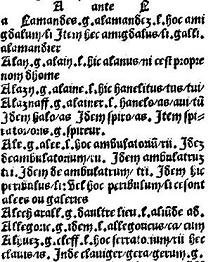 A ante L
Lamandes.g.alamandez.l.hoc ami
gdalum/li Item hec amigdalus/li.galli.
alamandier
Alan.g.alain.l.hic alanus/ni cest propre
nom dhome
Alazn.g.alaine.l.hic hanelitus/tus/tui
Alaznaff.g.alainer.l.hanelo/as/aui/tū
Idem halo/as Idem spiro/as. Item spi-
g.spireur.
Ale.g.alee.l.hoc ambulatoriū/rii. Idez
deambulatorium/ii. Idem ambulatrum
tri. Idem deambulatrum/tri. Idem hic
peribulus/li. Vel hoc peribulum/li ce sont
alees ou galeries
Alech arall.g.daultre lieu.l.aliūde ad.
Allegoric.g.idem.l.allegoricus/ca/cum
g.cleff.l.hoc serratorium/rii hec
clauis/is. Inde clauiger/gera/gerum.g.